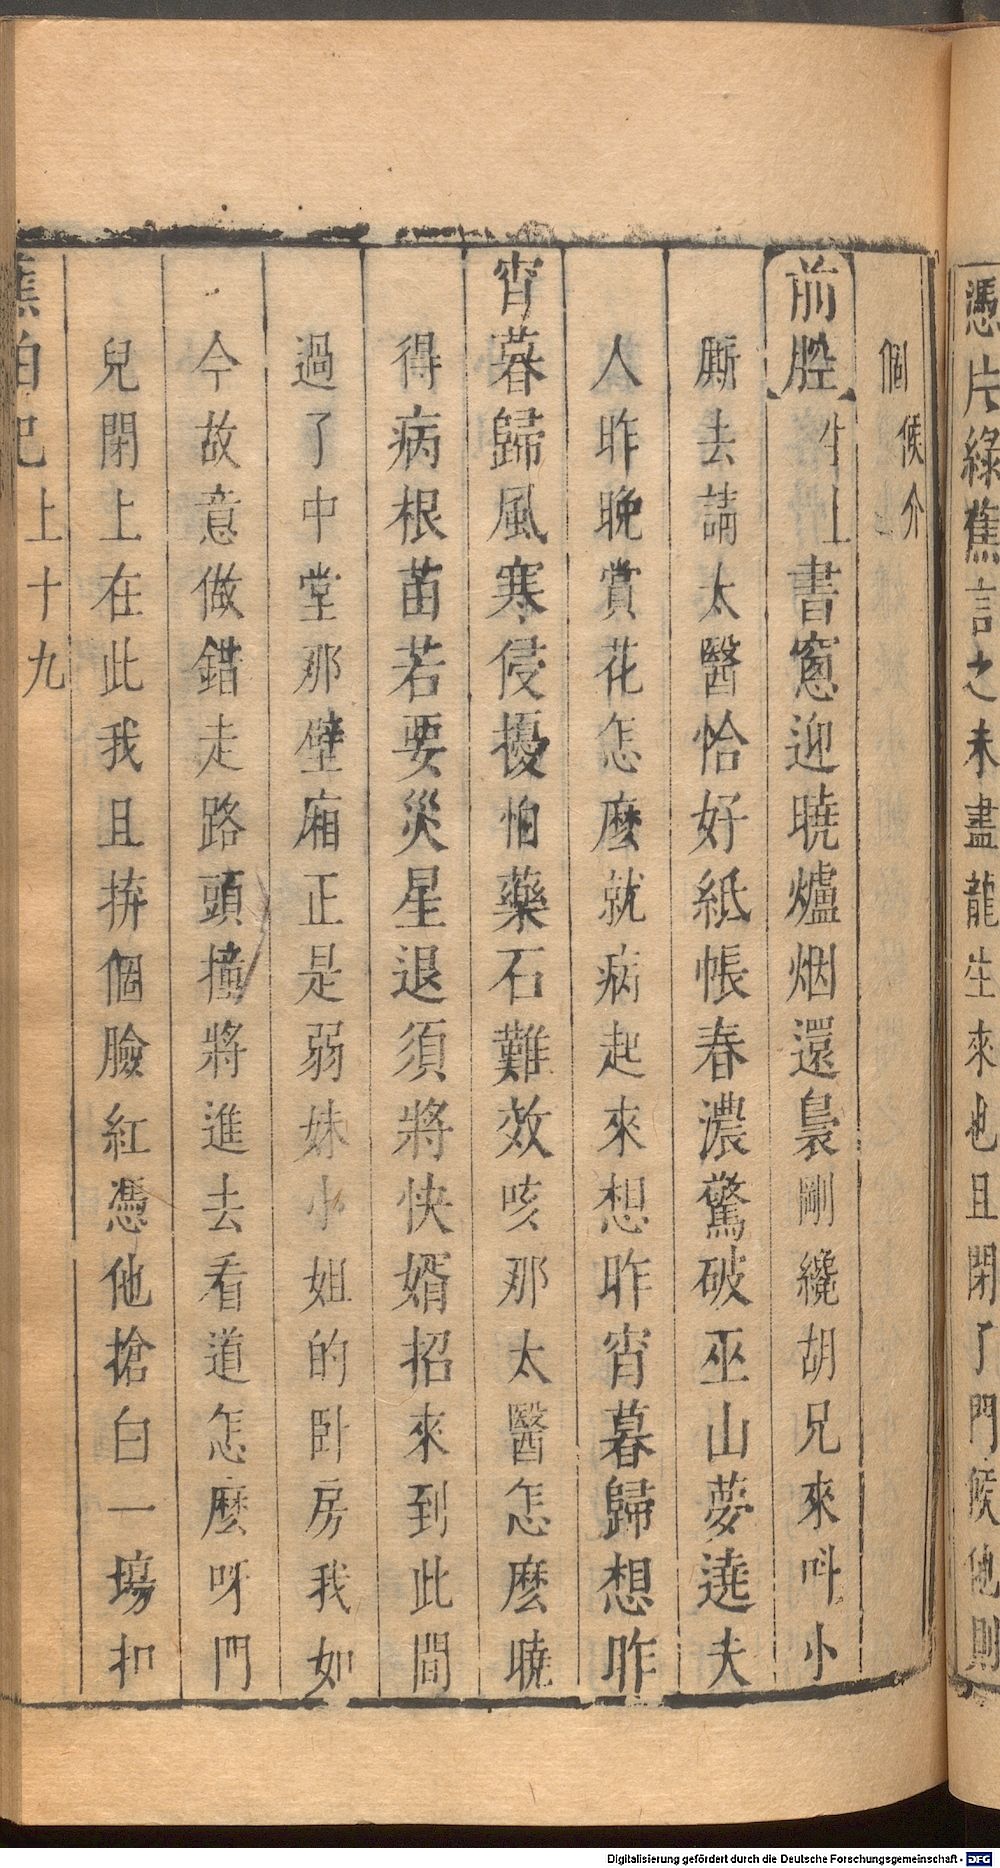 憑片綠蕉言之未盡龍生來也且閉了門候他則
個候介
前腔生上書窻迎曉爐烟還裊剛纔胡兄來呌小
厮去請太醫恰好紙帳春濃驚破巫山夢遶夫
人昨晚賞花怎麽就病起來想昨宵暮歸想昨
宵暮歸風寒侵擾怕藥石難效咳那太醫怎麽曉
得病根苗若要災星退須將快婿招來到此間
過了中堂那壁廂正是弱妹小姐的卧房我如
今故意做錯走路頭撞將進去看道怎麽呀門
兒閉上在此我且拚個臉紅憑他搶白一塲扣
蕉帕記上十九
Digitalisierung gefördert durch die Deutsche Forschungsgemeinschaft - DFG